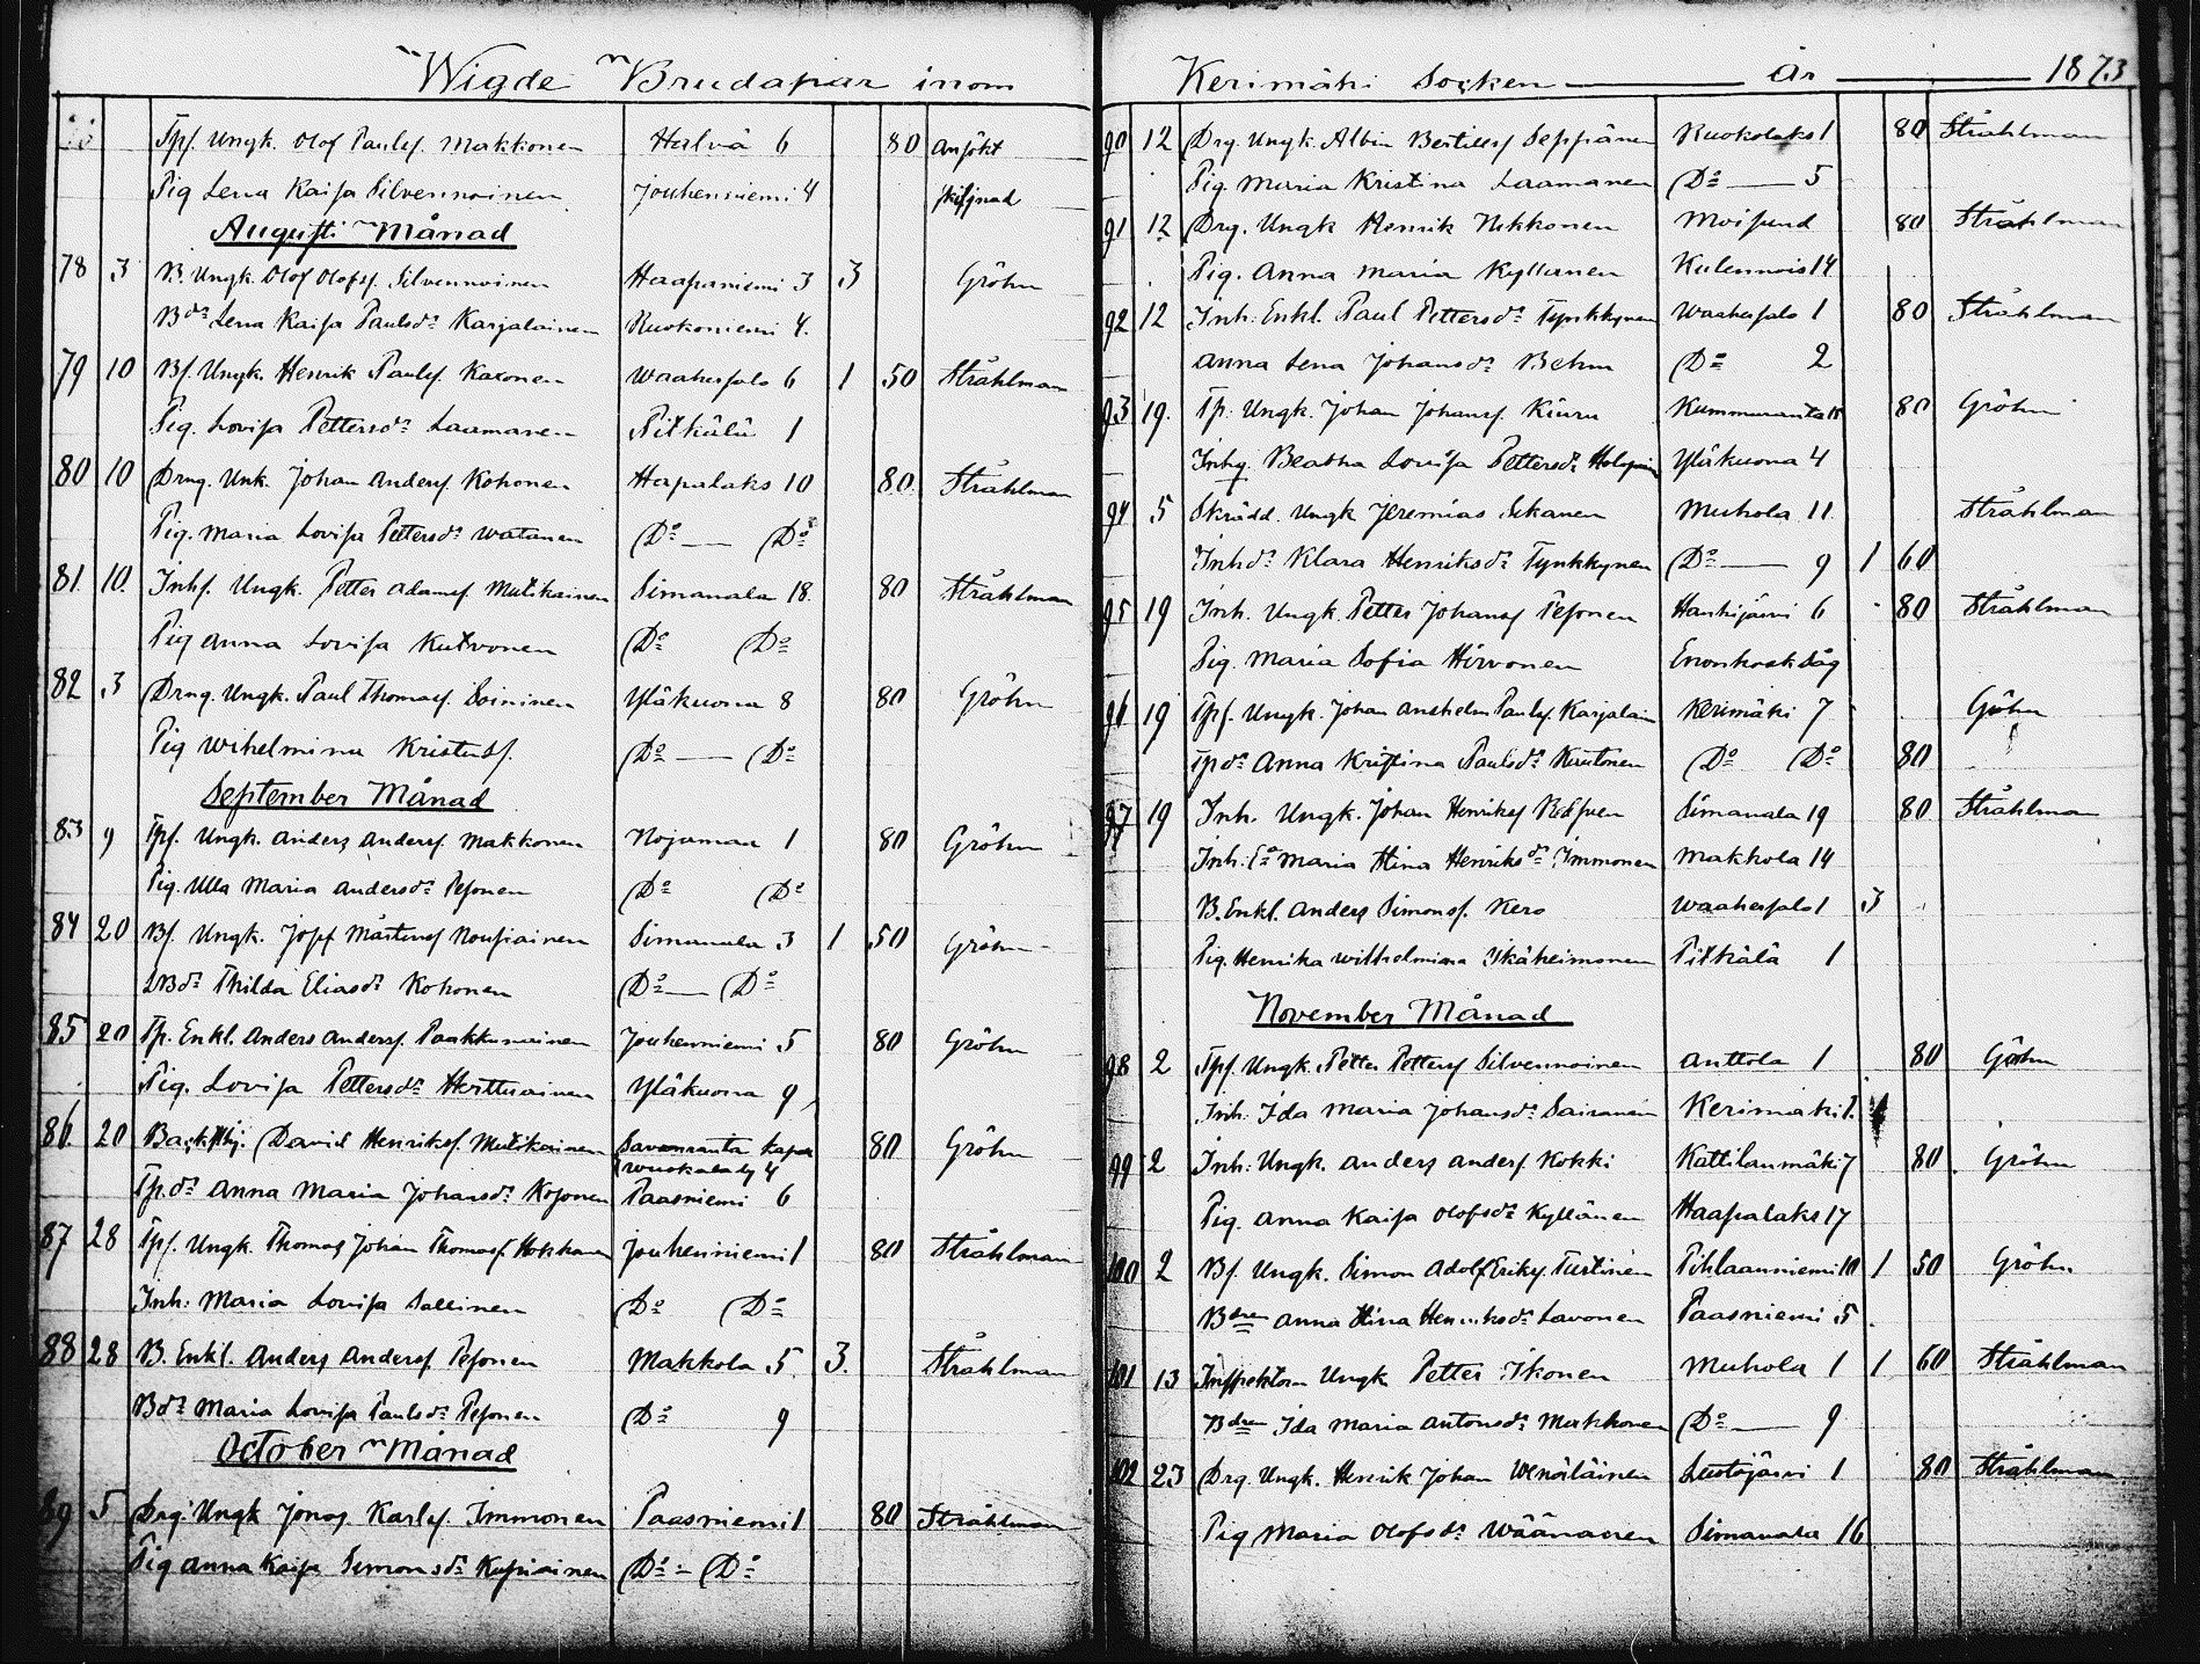 Wigde Brudapar inom
Tpf. Ungk. Olof Paulsf. Makkonen Halvä 6 80 Ansökt
Pig Lena Kaisa Silvennoinen Jouhenniemi 4 skiljnad
Augusti Månad
78 3 B. Ungk. Olof Olofsf. Silvennoinen Haapaniemi 3 3 Gröhn
Bdr Lena Kaisa Paulsdr Karjalainen Ruokoniemi 4.
79 10 Bf. Ungk. Henrik Paulsf. Kaxonen Waahersalo 6 1 50 Stråhlman
Pig. Lovisa Pettersdr Laamanen Pitkälä 1
80 10 Drng. Unk. Johan Andersf. Kohonen Hapalaks 10 80 Stråhlman
Pig. Maria Lovisa Pettersdr Watanen Do — Do
81. 10. Inhf. Ungk. Petter Adamsf. Mutikainen Simanala 18. 80 Stråhlman
Pig Anna Lovisa Kutvonen Do Do
82 3 Drng. Ungk. Paul Thomasf. Soininen Yläkuona 8 80 Gröhn
Pig Wihelmina Kristusf. Do — Do
September Månad
83 9 Tpf. Ungk. Anders Andersf. Makkonen Nojamaa 1 80 Gröhn
Pig. Ulla Maria Andersdr Pesonen Do Do
84 20 Bf. Ungk. Josef Mårtensf Nousiainen Simanala 3 1 50 Gröhn
Bdr Thilda Eliasdr Kohonen Do — Do
85 20 Tp. Enkl. Anders Andersf. Paakkunainen Jouhenniemi 5 80 Gröhn
Pig. Lovisa Pettersdr Herttuainen Yläkuona 9
86. 20 David Henriksf. Mutikainen Savonranta kapel 80 Gröhn
4
Tp.dr Anna Maria Johansdr Kosonen Paasniemi 6
87 28 Tpf. Ungk. Thomas Johan Thomasf. Hokkanen Jouhenniemi 1 80 Stråhlman
Inh: Maria Lovisa Sallinen Do Do
88 28 B. Enkl. Anders Andersf Pesonen Makkola 5. 3. Stråhlman
Bdr Maria Lovisa Paulsdr Pesonen Do 9
October Månad
89 5 Drg. Ungk Jonas Karlsf. Immonen Paasniemi 1 80 Stråhlman
Pig Anna Kaisa Simonsdr Kupiainen Do - Do
Kerimäki Socken — År — 1873
90 12 Drg. Ungk. Albin Bertilsf Seppänen Ruokolaks 1 80 Stråhlman
Pig. Maria Kristina Laamanen Do — 5
91 12 Drg. Ungk Henrik Nikkonen Moisund 80 Stråhlman
Pig. Anna Maria Kyllanen Kulennois 14
92 12 Inh: Enkl. Paul Pettersdr Tynkkynen Waahersalo 1 80 Stråhlman
Anna Lena Johansdr Behm Do 2
93 19. Tp: Ungk. Johan Johansf. Kiuru Kummuranta 80 Gröhn
Inhg. Beatha Lovisa Pettersdr Yläkuona 4
94 5 Skrädd. Ungk Jeremias Sikanen Muhola 11 Stråhlman
Inhdr Klara Henriksdr Tynkkynen Do — 9 1 60
95 19 Inh. Ungk. Petter Johansf Pesonen Hanhijärvi 6 80 Stråhlman
Pig. Maria Sofia Hirvonen Enonkosk Såg
96 19 Tpf. Ungk. Johan Anshelm Paulsf. Karjalain Kerimäki 7 Gröhn
Tpdr Anna Kristina Paulsdr Kautonen Do Do 80
97 19 Inh. Ungk. Johan Henriksf Simanala 19 80 Stråhlman
Inh: Maria Stina Henriksdr Immonen Makkola 14
B. Enkl. Anders Simonsf. Kero Waahersalo 1 3
Pig. Henrika Wilhelmina Ikäheimonen Pitkälä 1
November Månad
98 2 Tpf. Ungk. Petter Pettersf Silvennoinen Anttola 1 80 Gröhn
Inh: Ida Maria Johansdr Sairanen Kerimäki 1.
99 2 Inh: Ungk. Anders Andersf. Kokki Kattilanmäki 7 80 Gröhn
Pig. Anna Kaisa Olofsdr Kyllänen Haapalaks 17
100 2 Bf. Ungk. Simon Adolf Eriksf Turtinen Pihlaanniemi 10 1 50 Gröhn
Bdren Anna Stina Henriksdr Lavonen Paasniemi 5
101 13 Inspektorn Ungk Petter Ikonen Muhola 1 1 60 Stråhlman
Bdren Ida Maria Antonsdr Makkonen Do — 9
102 23 Drg. Ungk. Henrik Johan Wenäläinen Lustojärvi 1 80 Stråhlman
Pig Maria Olofsdr Wäänanen Simanala 16